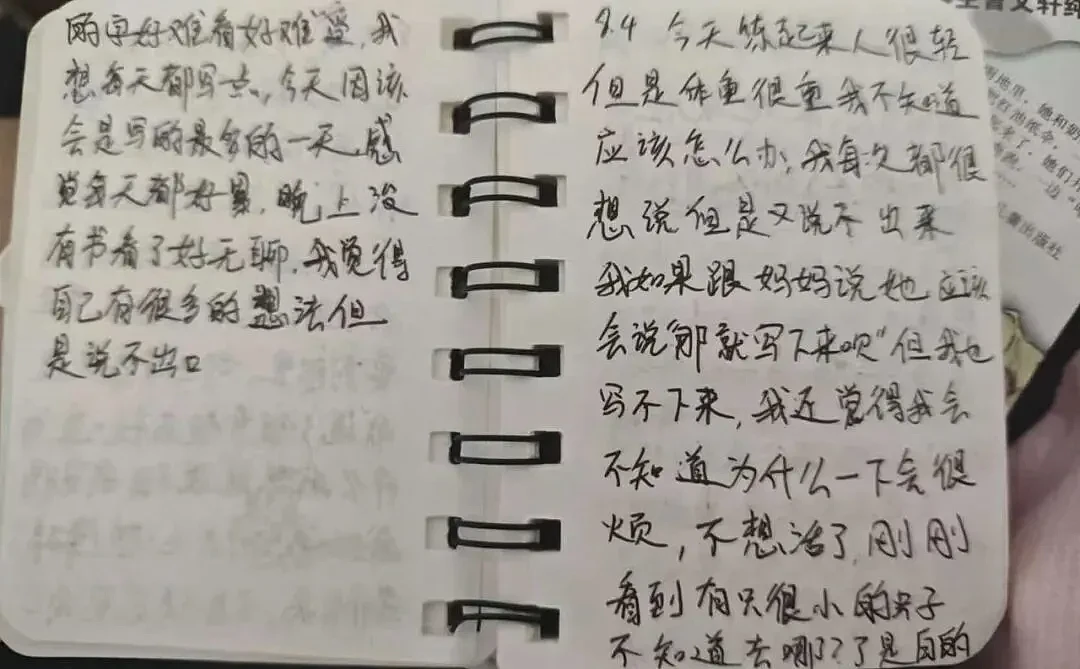 的字好难看好难，我
想每天都写一点，今天因该
会是写的最多的一天，感
觉每天都好累，晚上没
有书看了好无聊，我觉得
自己有很多的想法但
是说不出口
9.4 今天练起来人很轻
但是体重很重我不知道
应该怎么办，我每次都很
想说但是又说不出来
我如果跟妈妈说她应该
会说"那就写下来呗"但我也
写不下来，我还觉得我会
不知道为什么一下会很
烦，不想活了，刚刚
看到有只很小的
不知道去哪了是白的
儿童出版社